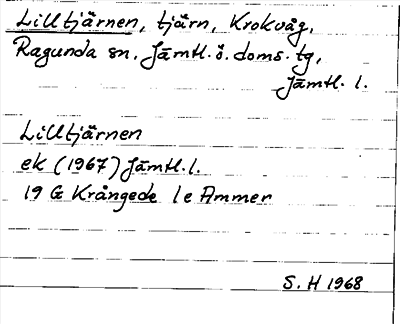 Lilltjärnen, tjärn, Krokvåg,
Ragunda sn. Jämtl. ö. doms. tg,
Jämtl. l.
Lilltjärnen
ek (1967) Jämtl. l.
19 G Krångede 1e Ammer
S. H 1968